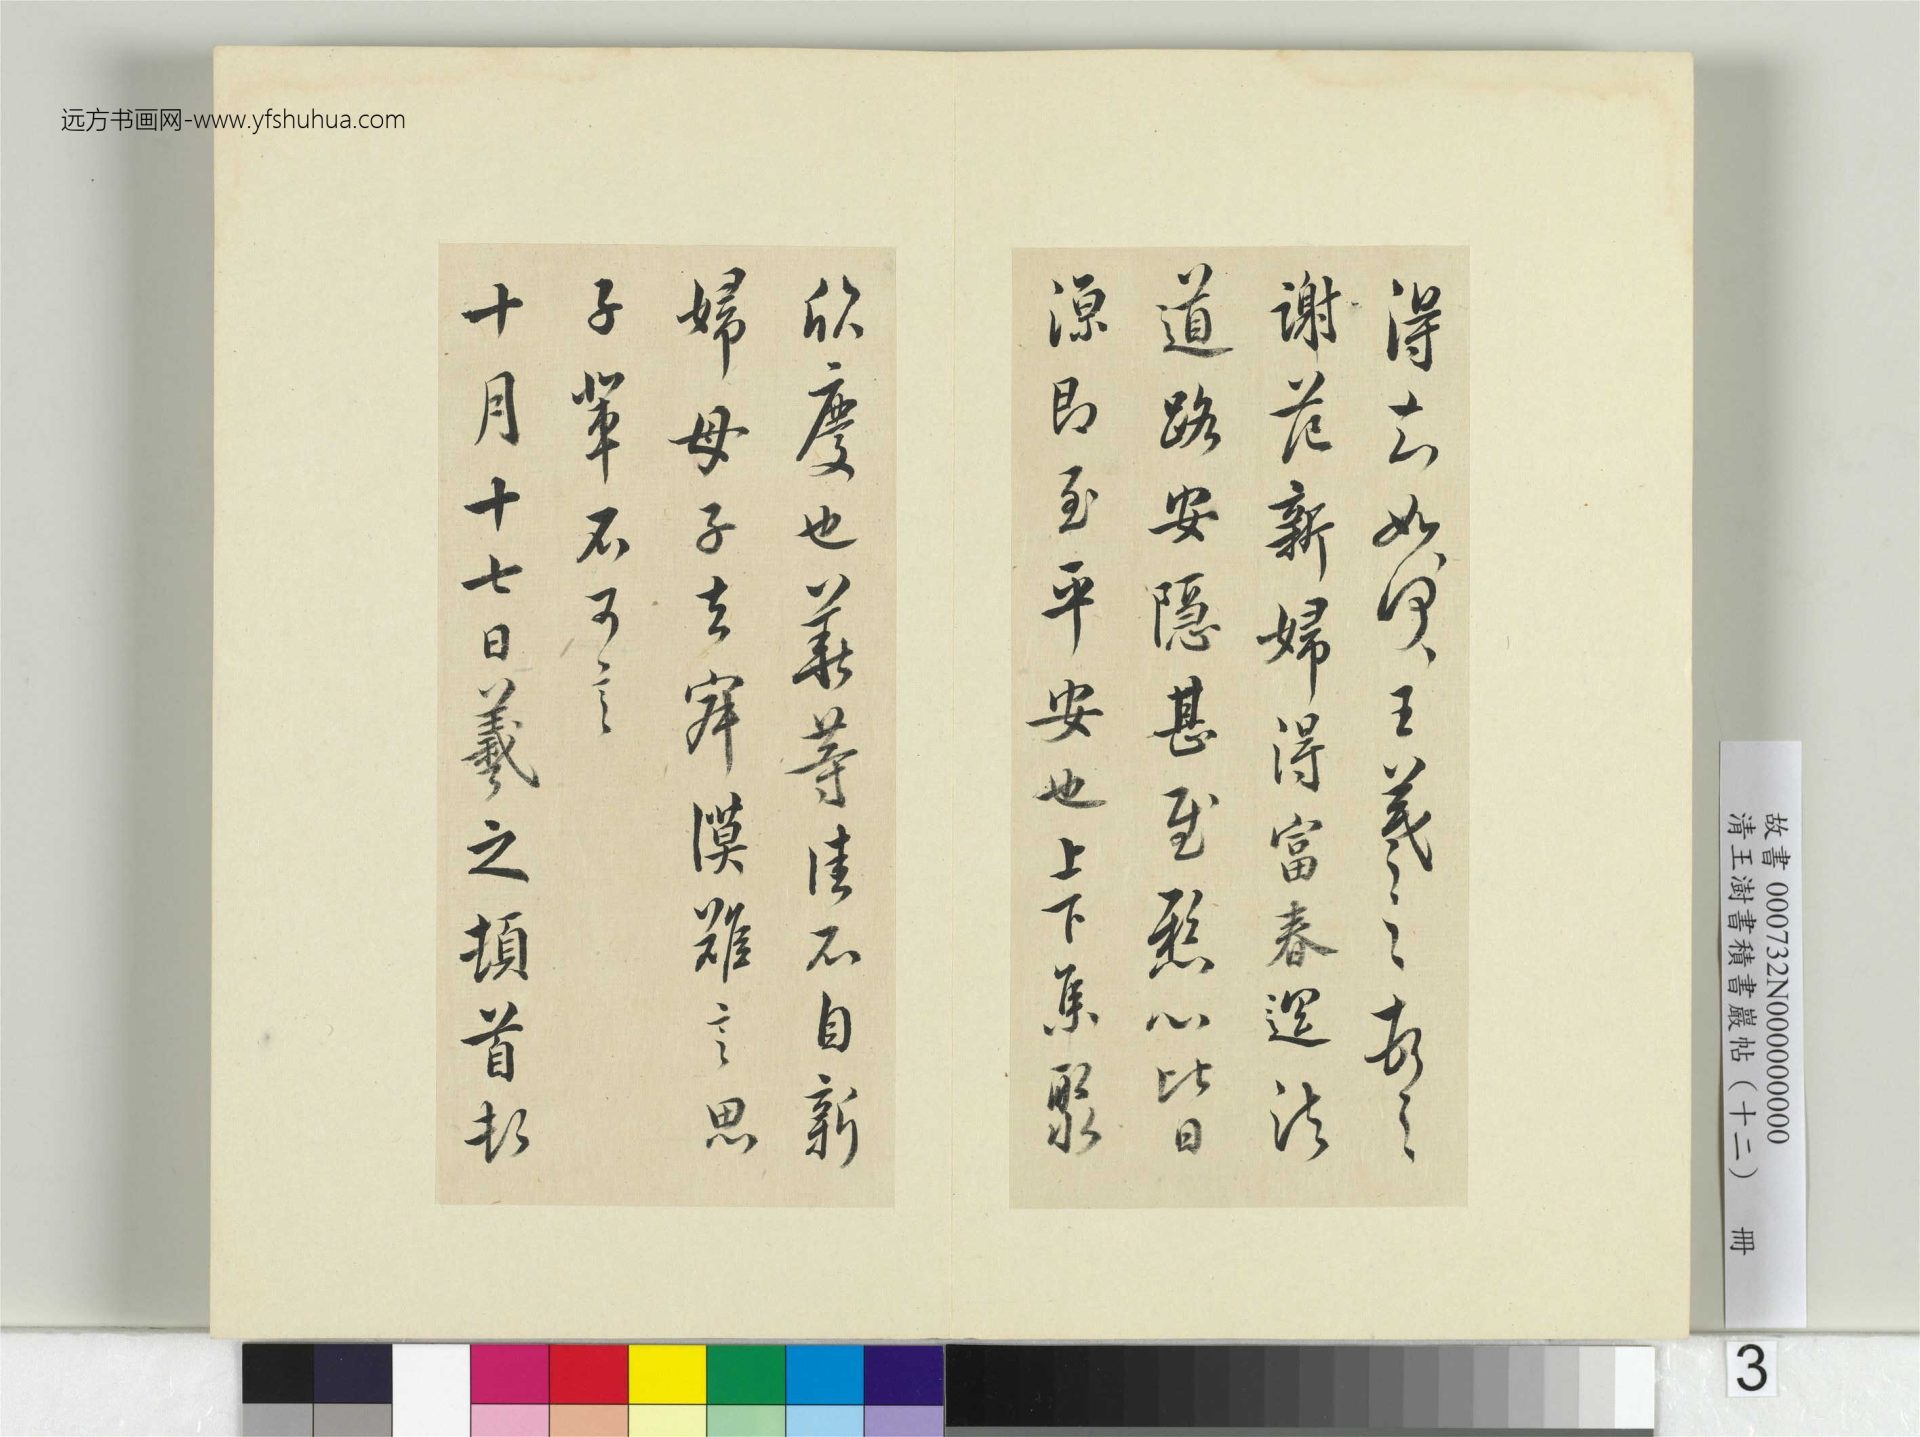 远方书画网-www.yfshuhua.com
得去如何王羲之
謝范新婦得富春還諸
道路安隱甚慰心比日
涼即至平安也上下集聚
欣慶也等佳不自新
婦母子去寂漠難言思
子輩不可言
十月十七日羲之頓首
故書 000732N000000000
清王澍書積書巖帖(十二) 冊
3